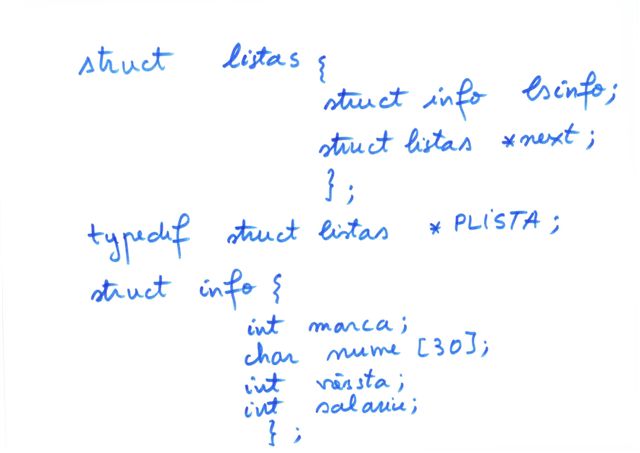 struct listas {
struct info lsinfo;
struct listas *next;
};
typedef struct listas * PLISTA;
struct info {
int marca;
char nume [30];
int vârsta;
int salariu;
};